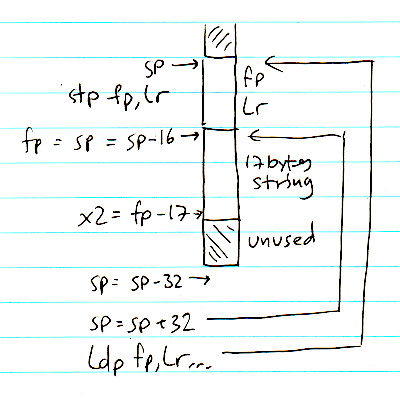 sp →
fp
stp fp, Lr
Lr
fp = sp = sp-16 →
17 bytes
string
x2 = fp-17 →
unused
sp = sp-32 →
sp = sp + 32
Ldp fp, Lr...